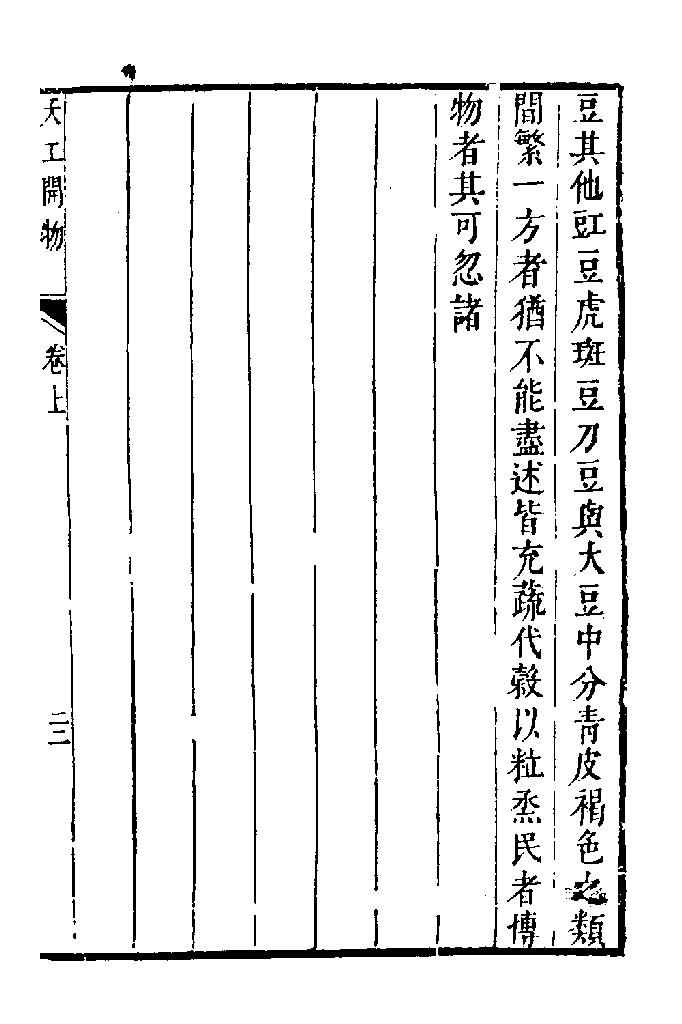 豆其他豇豆虎斑豆刀豆與大豆中分青皮褐色之類
間繁一方者猶不能盡述皆充蔬代榖以粒烝民者博
物者其可忽諸
天工開物
卷上
二二